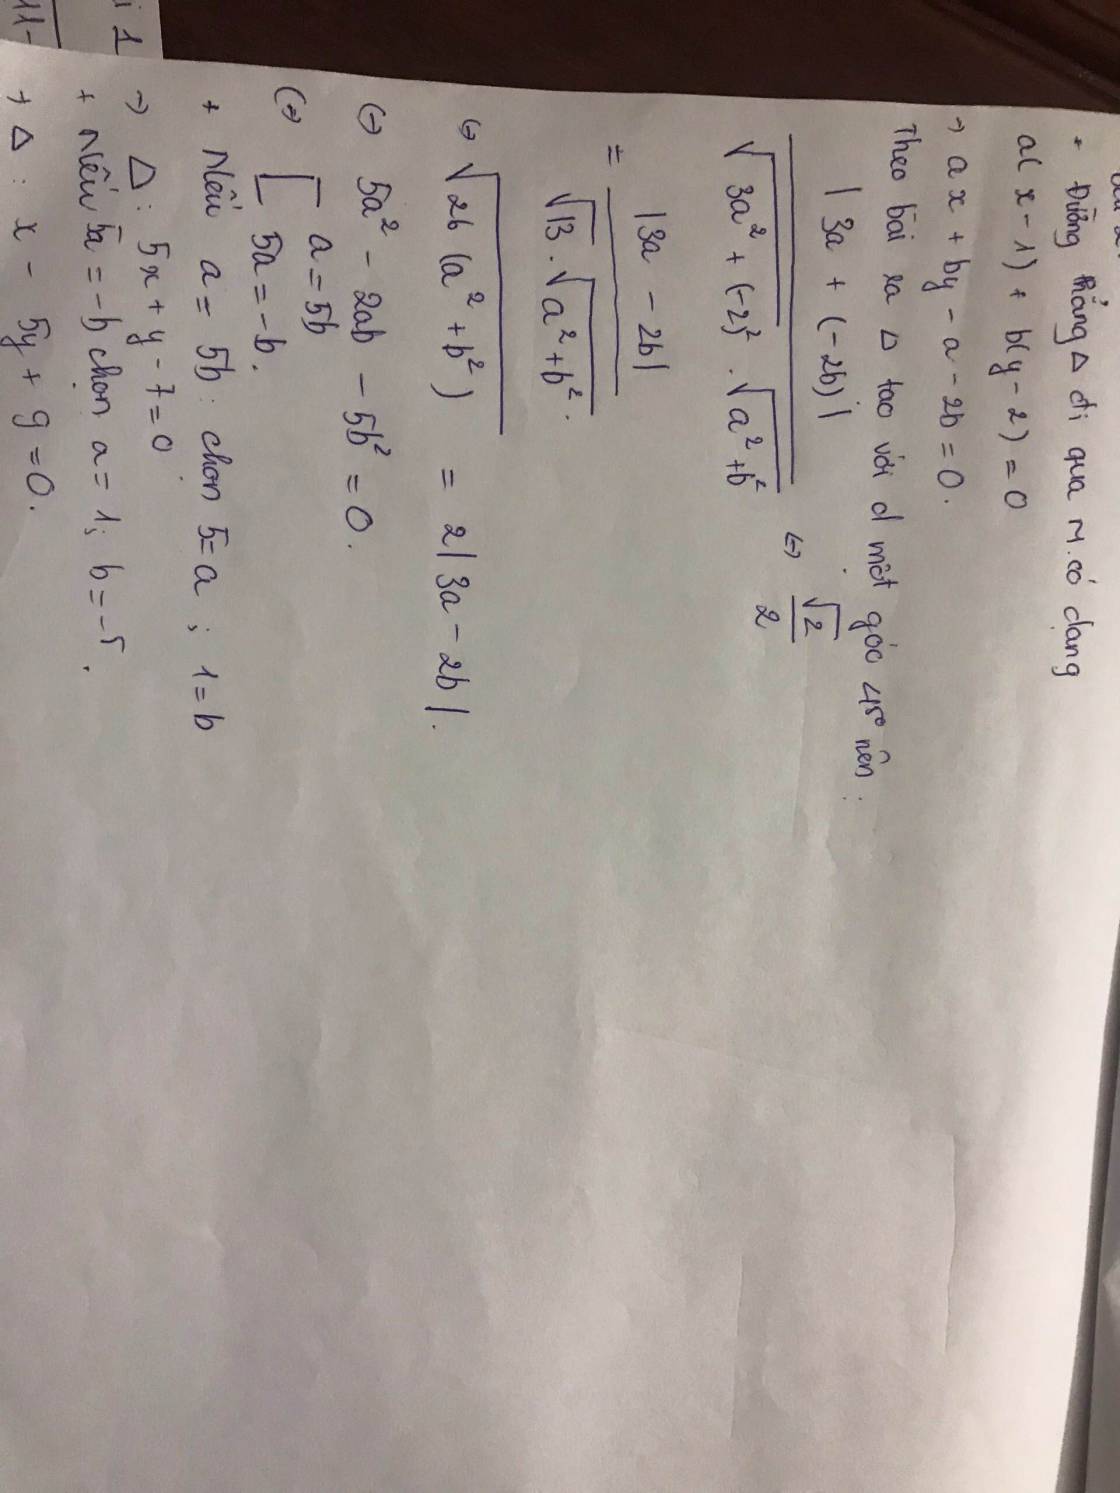 + Đường thẳng Δ đi qua M có dạng
a(x-1) + b(y-2) = 0
→ ax + by - a - 2b = 0.
Theo bài ra Δ tạo với d một góc 45° nên:
|3a + (-2b)|
√3a² + (-2)² . √a² + b²
⇔ √2 / 2
= |3a - 2b| / √13 . √a² + b² .
⇔ √26 (a² + b²) = 2|3a - 2b|.
⇔ 5a² - 2ab - 5b² = 0.
⇔ [ a = 5b
5a = -b.
+ Nếu a = 5b: chọn 5 = a ; 1 = b
→ Δ: 5x + y - 7 = 0
+ Nếu 5a = -b chọn a = 1; b = -5.
→ Δ: x - 5y + 9 = 0.